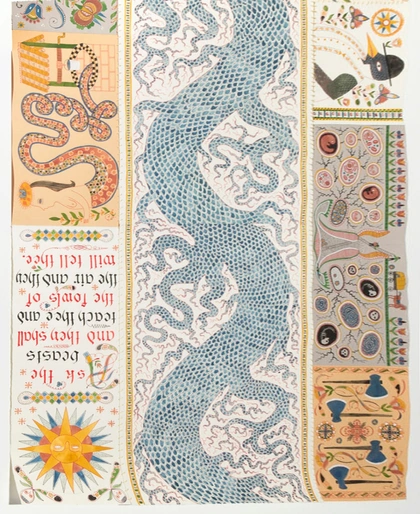 Ask the
beasts
and they shall
teach thee and
the fowls of
the air and they
will tell thee.